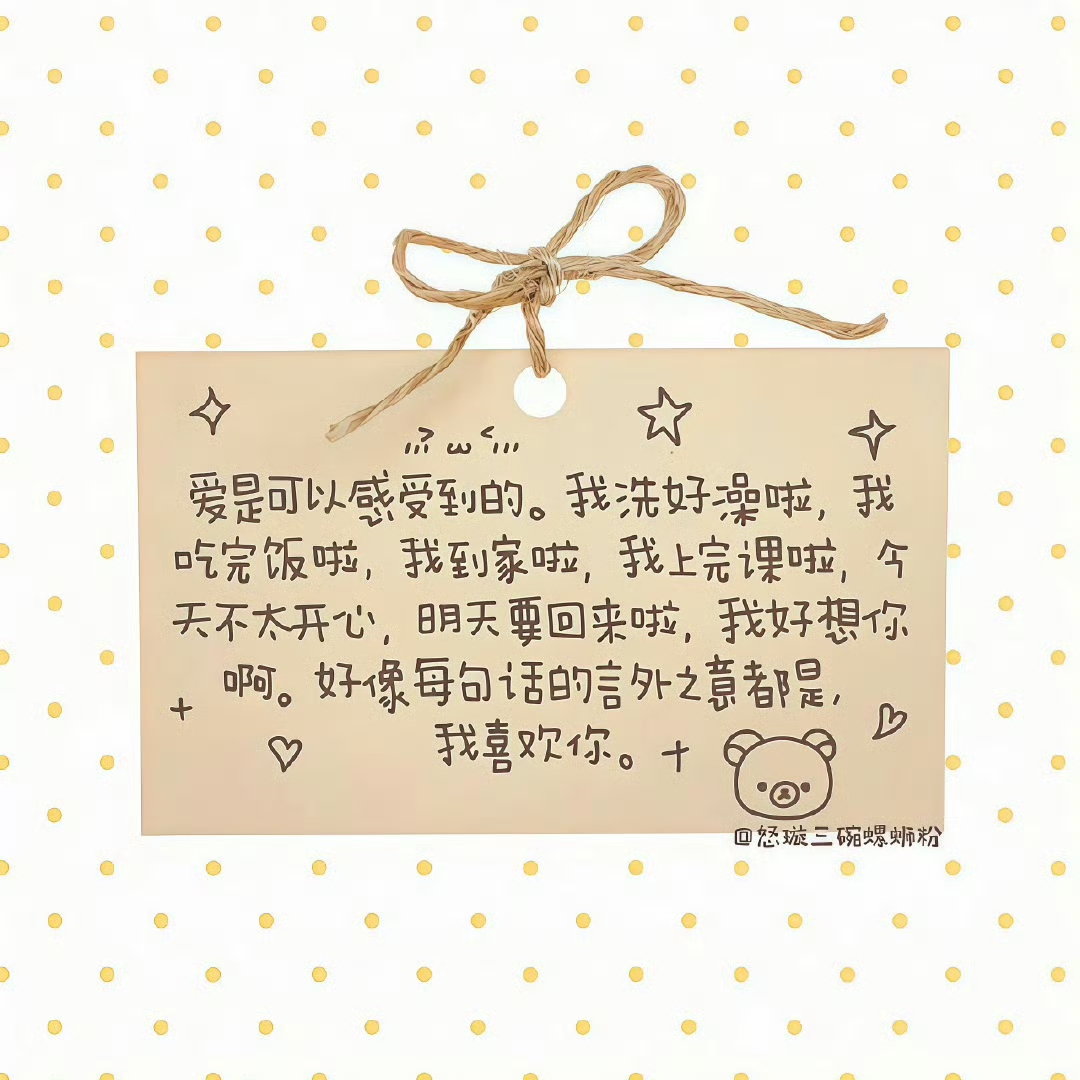 爱是可以感受到的。我洗好澡啦，我
吃完饭啦，我到家啦，我上完课啦，今
天不太开心，明天要回来啦，我好想你
啊。好像每句话的言外之意都是，
我喜欢你。
@怒璇三碗螺蛳粉